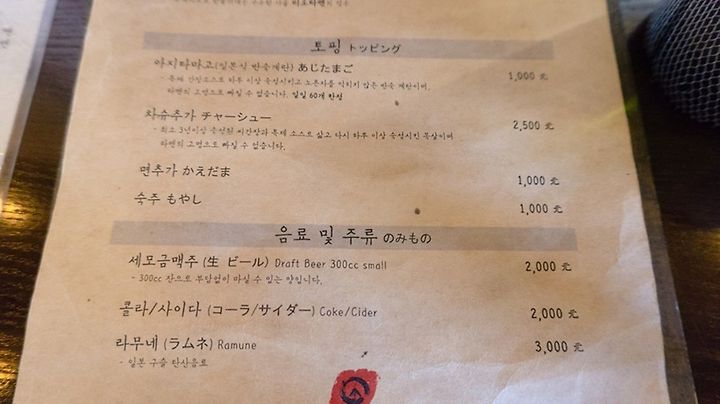 토핑 トッピング
아지타마고(일본식 반숙계란) あじたまご 1,000 元
- 특제 간장소스로 하루 이상 숙성시키고 노른자를 익히지 않은 반숙 계란이며,
라멘의 고명으로 빠질 수 없습니다. 일일 60개 한정
차슈추가 チャーシュー 2,500 元
- 최소 3년이상 숙성된 씨간장과 특제 소스로 삶고 다시 하루 이상 숙성시킨 목살이며
라멘의 고명으로 빠질 수 없습니다.
면추가 かえだま 1,000 元
숙주 もやし 1,000 元
음료 및 주류 のみもの
세모금맥주 (生 ビール) Draft Beer 300cc small 2,000 元
- 300cc 잔으로 부담없이 마실 수 있는 양입니다.
콜라/사이다 (コーラ/サイダー) Coke/Cider 2,000 元
라무네 (ラムネ) Ramune 3,000 元
- 일본 구슬 탄산음료